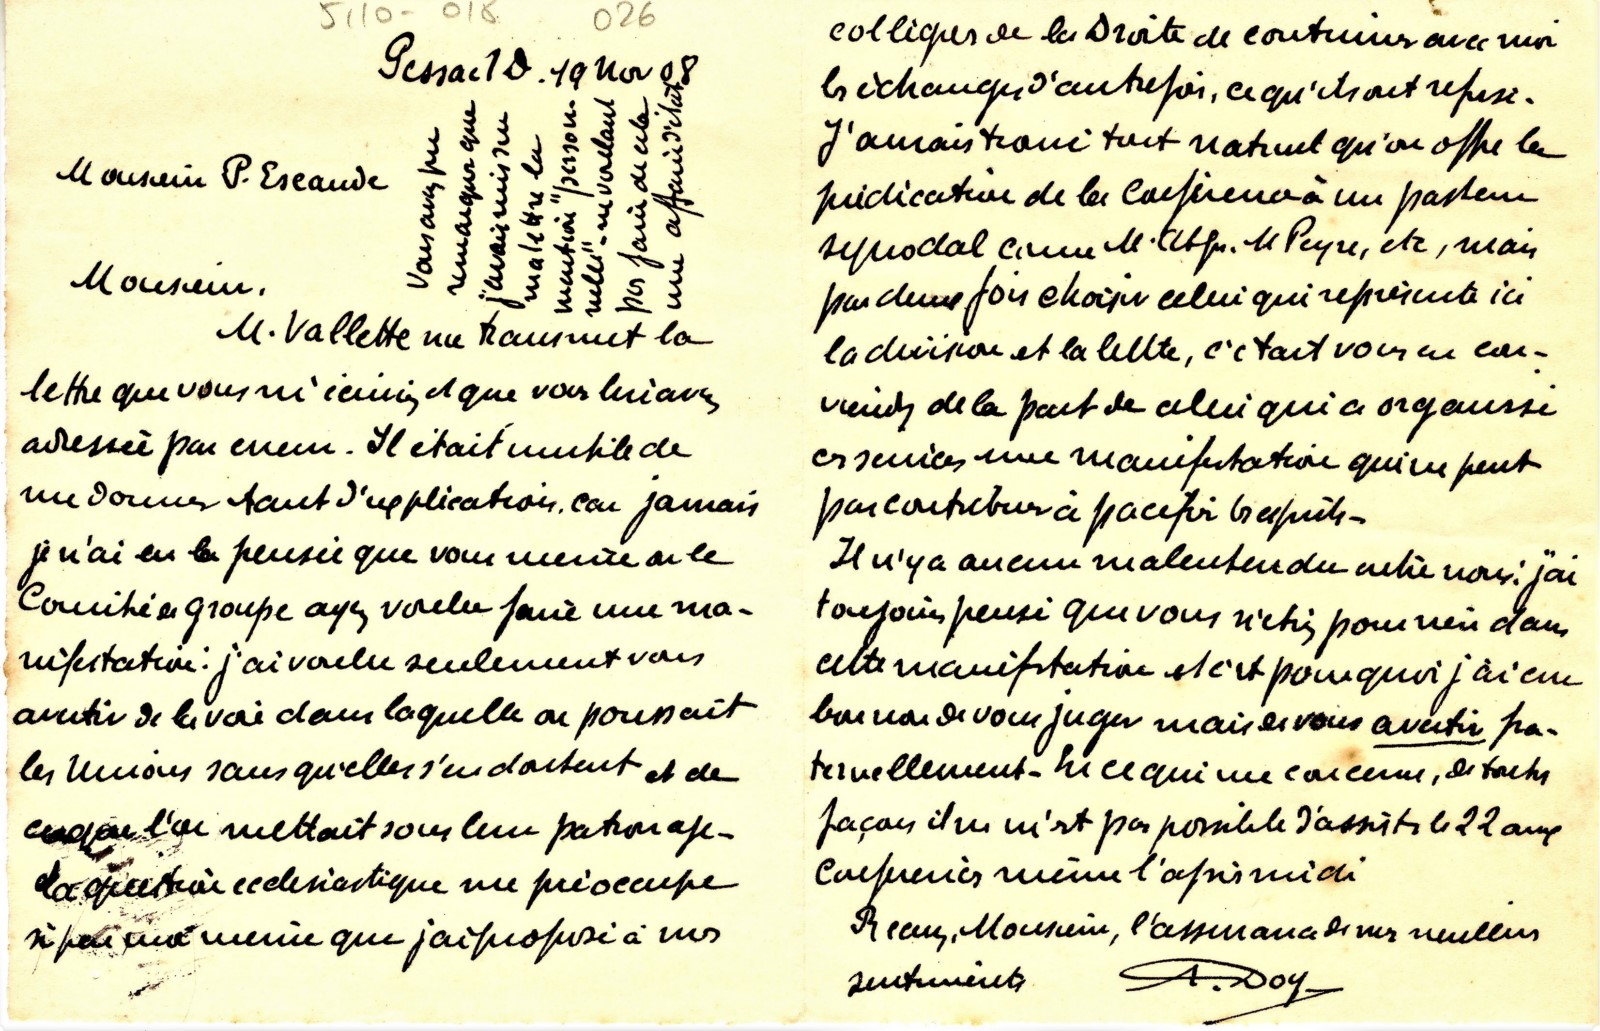 5110-018 026
Pessac 1 D. 19 Nov 08
Vous avez pu
remarquer que
j'avais mis sur
ma lettre la
mention "person
nelle" - ne voulant
pas faire de cela
une affaire d'état
Monsieur P. Escande
Monsieur,
M. Vallette me transmet la
lettre que vous m'écriviez et que vous lui avez
adressée par erreur. Il était inutile de
me donner tant d'explications, car jamais
je n'ai eu la pensée que vous même ou le
Comité de groupe ayez voulu faire une ma-
nifestation: j'ai voulu seulement vous
avertir de la voie dans laquelle on poussait
les Unions sans qu'elles s'en doutent et de
ce que l'on mettait sous leur patronage-
La question ecclésiastique me préoccupe
si peu moi même que j'ai proposé à nos
collègues de la Droite de continuer avec moi
les échanges d'autrefois, ce qu'ils ont refusé.
J'aurais trouvé tout naturel qu'on offre la
prédication de la Conférence à un pasteur
synodal comme M. M Peyre, etc, mais
par deux fois choisir celui qui représente ici
la division et la lutte, c'était vous en con-
viendrez de la part de celui qui a organisé
ces services une manifestation qui ne peut
pas contribuer à pacifier les esprits-
Il n'y a aucun malentendu entre nous: j'ai
toujours pensé que vous n'étiez pour rien dans
cette manifestation et c'est pourquoi j'ai cru
bon non de vous juger mais de vous avertir fra-
ternellement- En ce qui me concerne, de toutes
façons il ne m'est pas possible d'assister le 22 aux
Conférences même l'après midi
Recevez, Monsieur, l'assurance de mes meilleurs
sentiments A. Doy